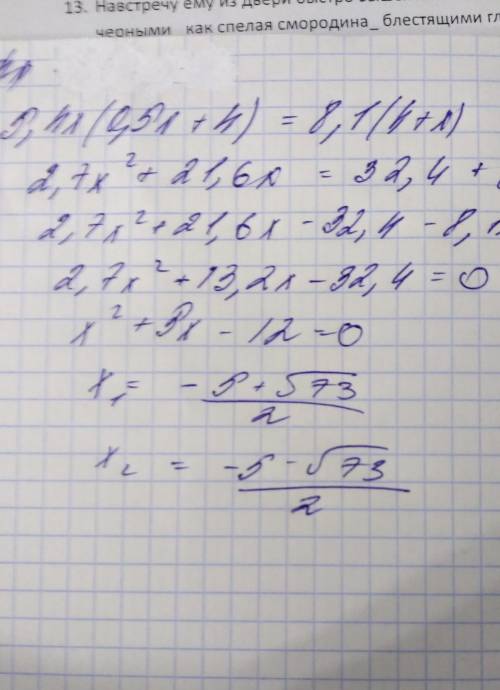 13. Навстречу ему из двери быстро
черными как спелая смородина_ блестящими гл
5,4x(0,5x+4) = 8,1(4+x)
2,7x²+21,6x = 32,4 +
2,7x²+21,6x-32,4-8,1
2,7x²+13,2x-32,4=0
x²+5x-12=0
x₁= -5+√73
2
x₂ = -5-√73
2